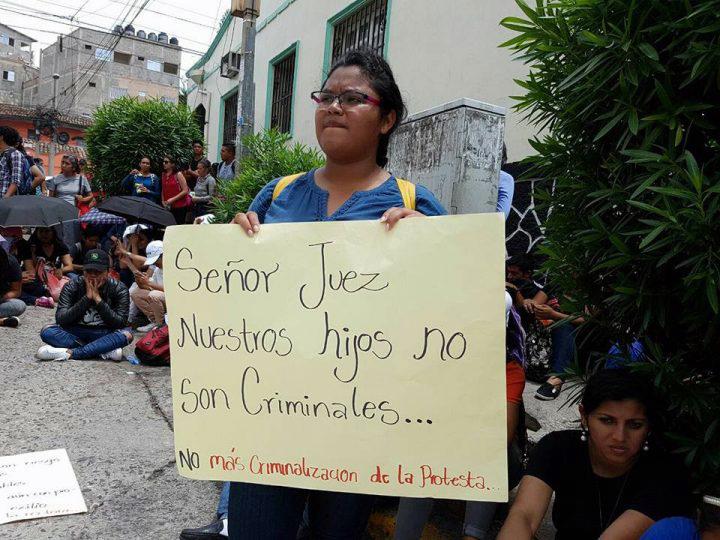 Señor Juez
Nuestros hijos no
Son Criminales...
NO más Criminalización de la Protesta...